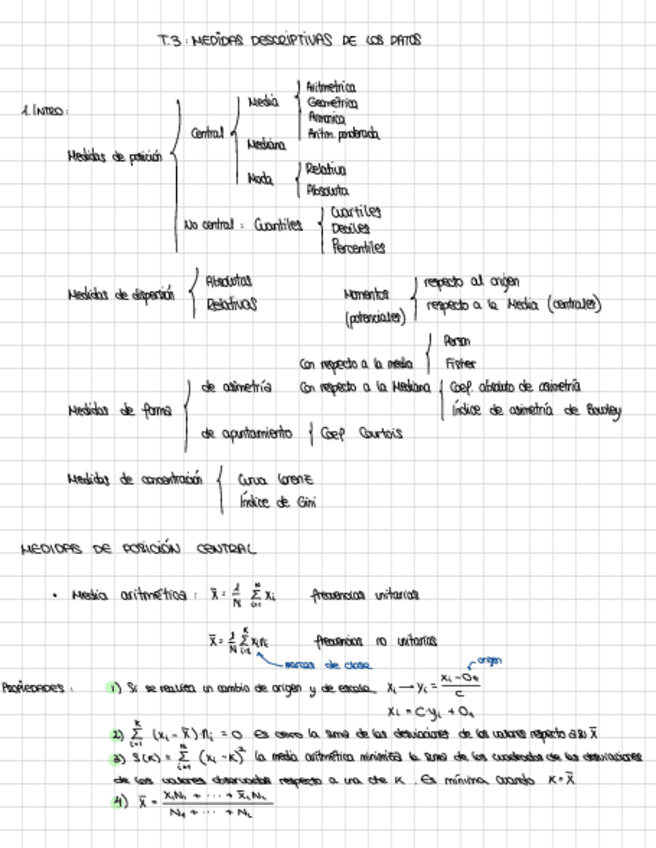 T.3: MEDIDAS DESCRIPTIVAS DE LOS DATOS
1. INTRO:
Medidas de posición { Central { Media { Aritmetrica
Geometrica
Armonica
Aritm. ponderada
Mediana
Moda { Relativa
Absoluta
No central: Cuantiles { Cuartiles
Deciles
Percentiles
Medidas de dispersión { Absolutas
Relativas
Momentos (potenciales) { respecto al origen
respecto a la Media (centrales)
Medidas de forma { de asimetría
Con respecto a la media { Person
Fisher
Con respecto a la Mediana { Coef. absoluto de asimetría
Índice de asimetría de Bowley
de apuntamiento { Coef Curtosis
Medidas de concentración { Curva Lorenz
Índice de Gini
MEDIDAS DE POSICIÓN CENTRAL
• Media aritmética: x̄ = 1/N Σ xi frecuencias unitarias
x̄ = 1/N Σ xi ni frecuencias no unitarias
marcas de clase
origen
PROPIEDADES: 1) Si se realiza un cambio de origen y de escala xi → yi = (xi - O₁)/C
xi = C·yi + O₁
2) Σ (xi - x̄) ni = 0 Es cero la suma de las desviaciones de los valores respecto a su x̄
3) S(K) = Σ (xi - K)² la media aritmética minimiza la suma de los cuadrados de las desviaciones
de los valores observados respecto a una cte K. Es mínima cuando K = x̄
4) x̄ = (x̄₁N₁ + ··· + x̄LNL) / (N₁ + ··· + NL)